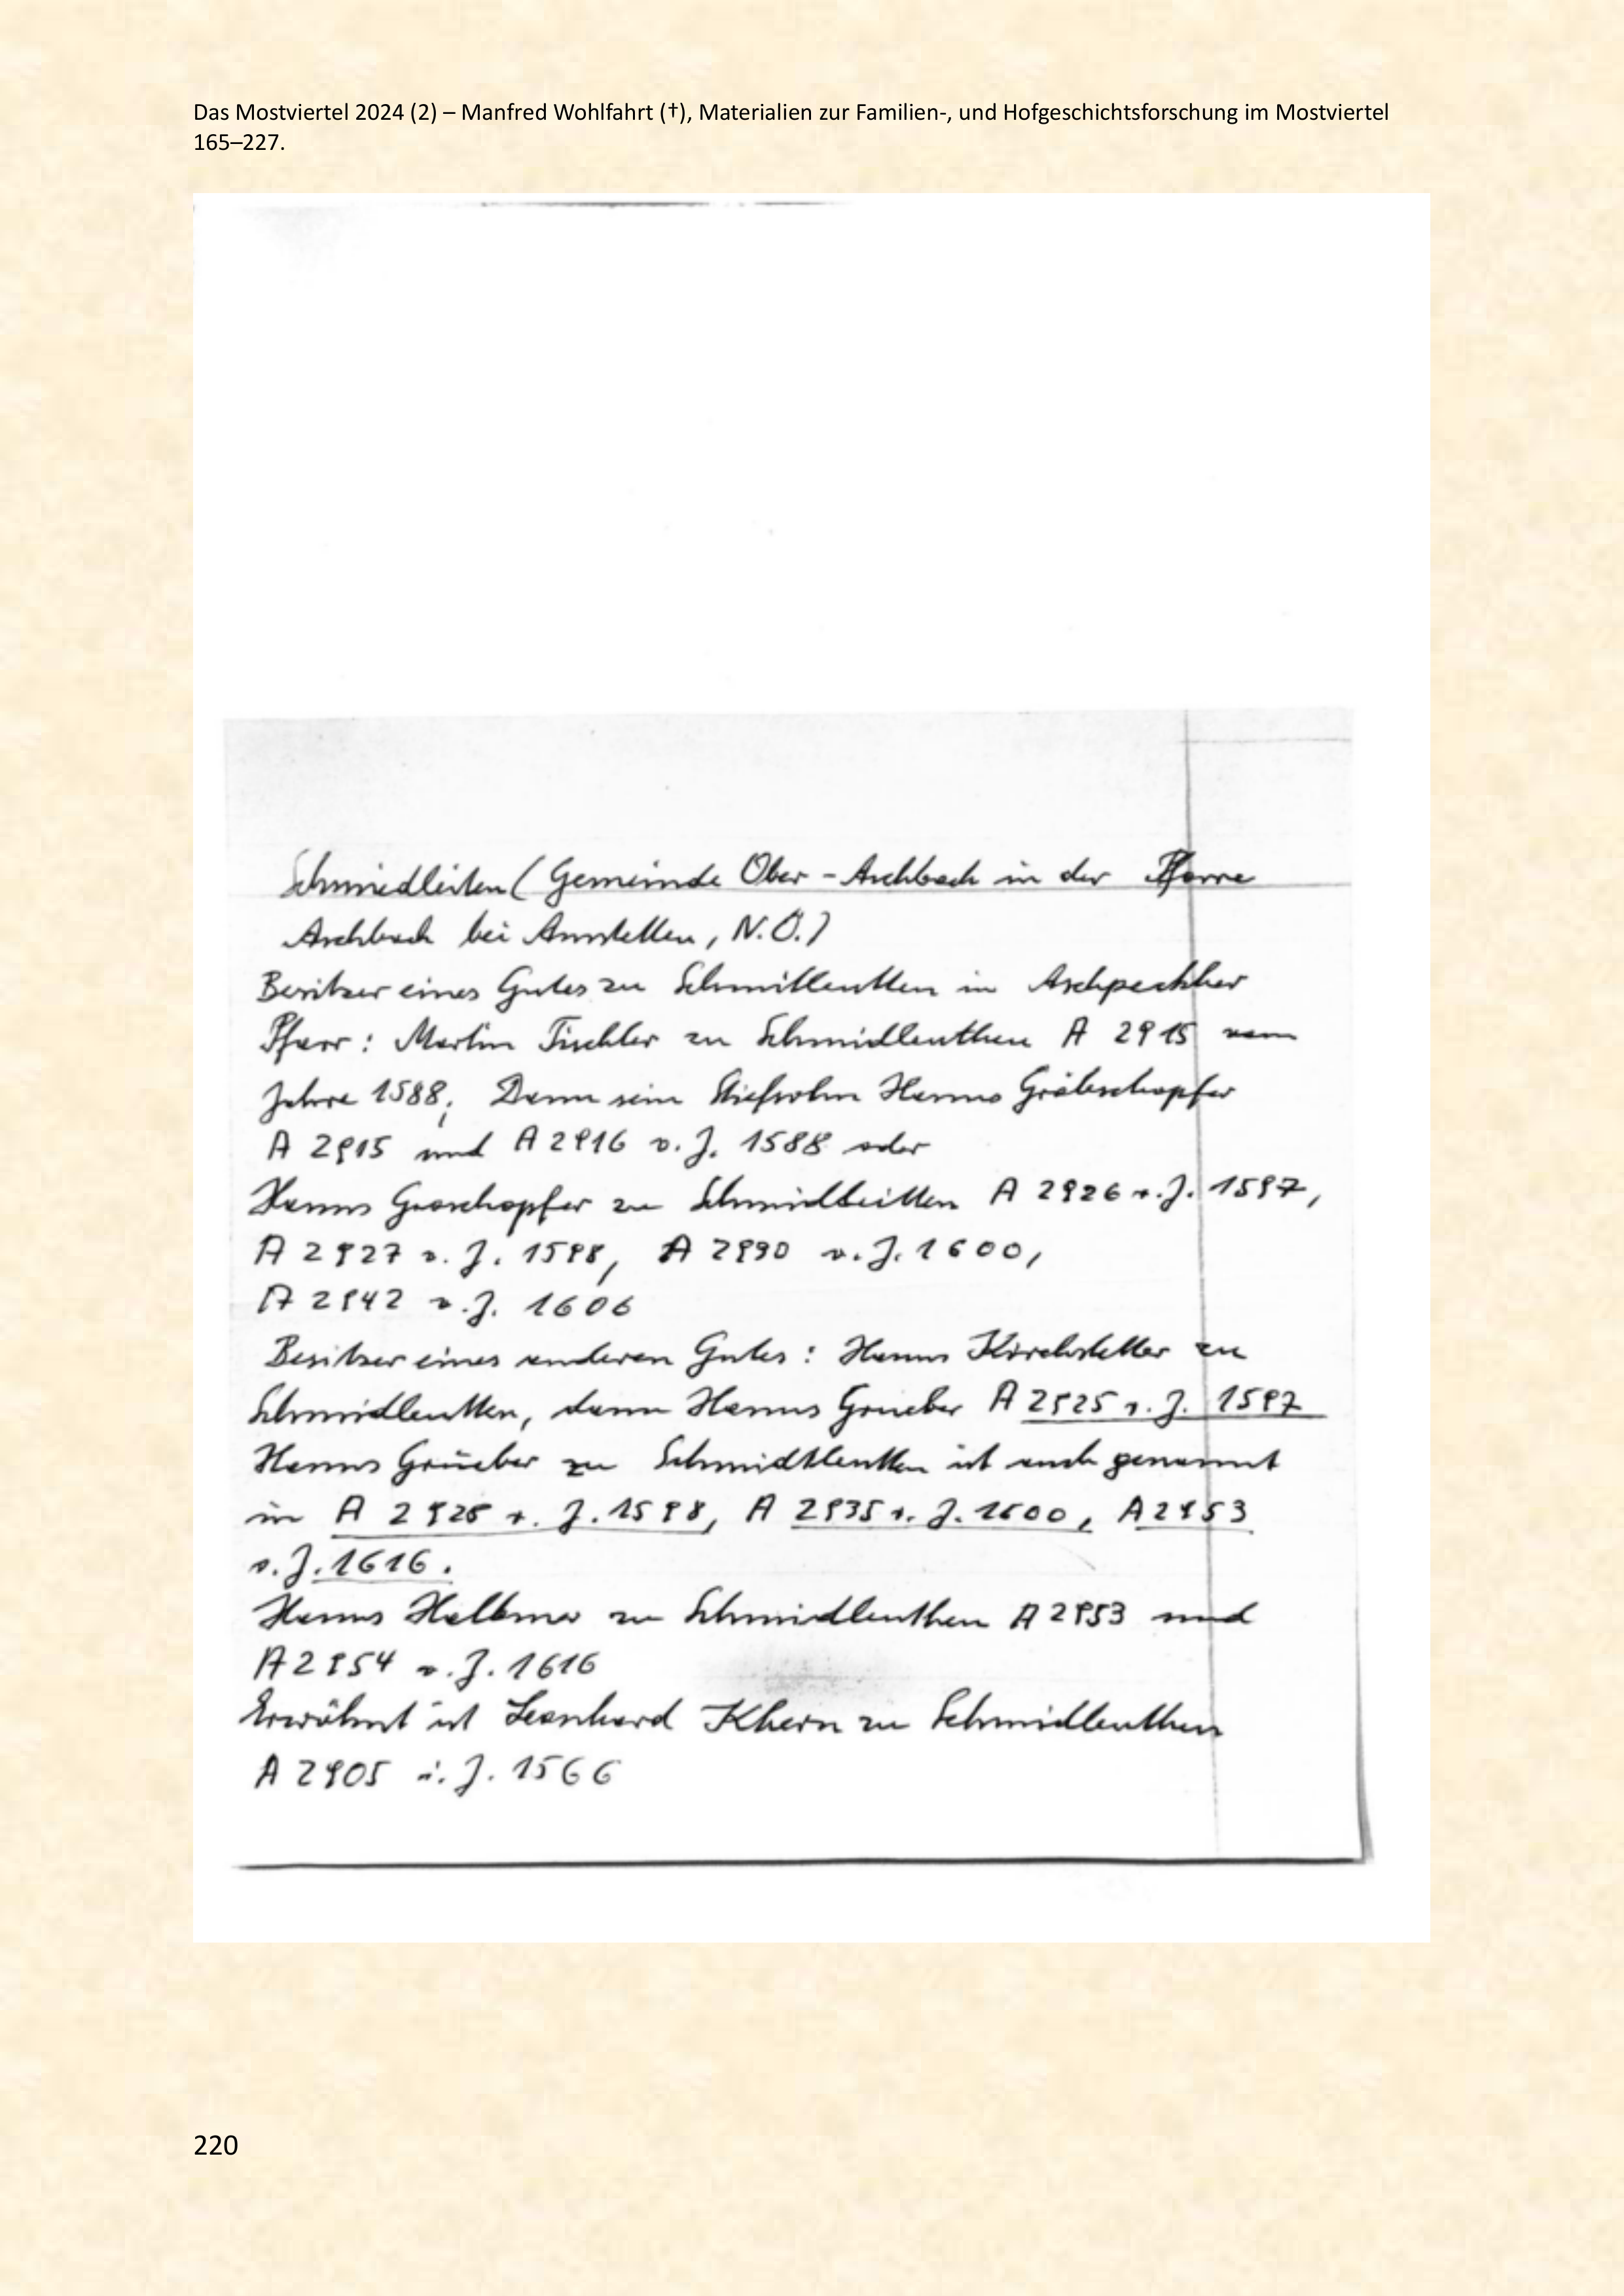 Das Mostviertel 2024 (2) – Manfred Wohlfahrt (†), Materialien zur Familien-, und Hofgeschichtsforschung im Mostviertel
165–227.
Schmiedleiten (Gemeinde Ober-Aschbach in der Pfarre
Aschbach bei Amstetten, N.Ö.)
Besitzer eines Gutes zu Schmittleutten in Aschpeckher
Pfarr: Martin Tischler zu Schmidleuthen A 2915 vom
Jahre 1588; Dann sein Stiefsohn Hanns
A 2915 und A 2916 v. J. 1588 oder
Hanns Graschopfer zu Schmidleitten A 2926 v. J. 1597,
A 2927 v. J. 1598, A 2930 v. J. 1600,
A 2942 v. J. 1606
Besitzer eines anderen Gutes: Hanns Kirchstetter zu
Schmidleutten, dann Hanns Grueber A 2925 v. J. 1597
Hanns Grüeber zu Schmidtleutten ist auch genannt
in A v. J. 1598, A 2935 v. J. 1600, A 2953
v. J. 1616.
Hanns zu Schmidleuthen A 2953 und
A 2954 v. J. 1616
Erwähnt ist Leonhard Khern zu Schmidleuthen
A 2905 i. J. 1566
220